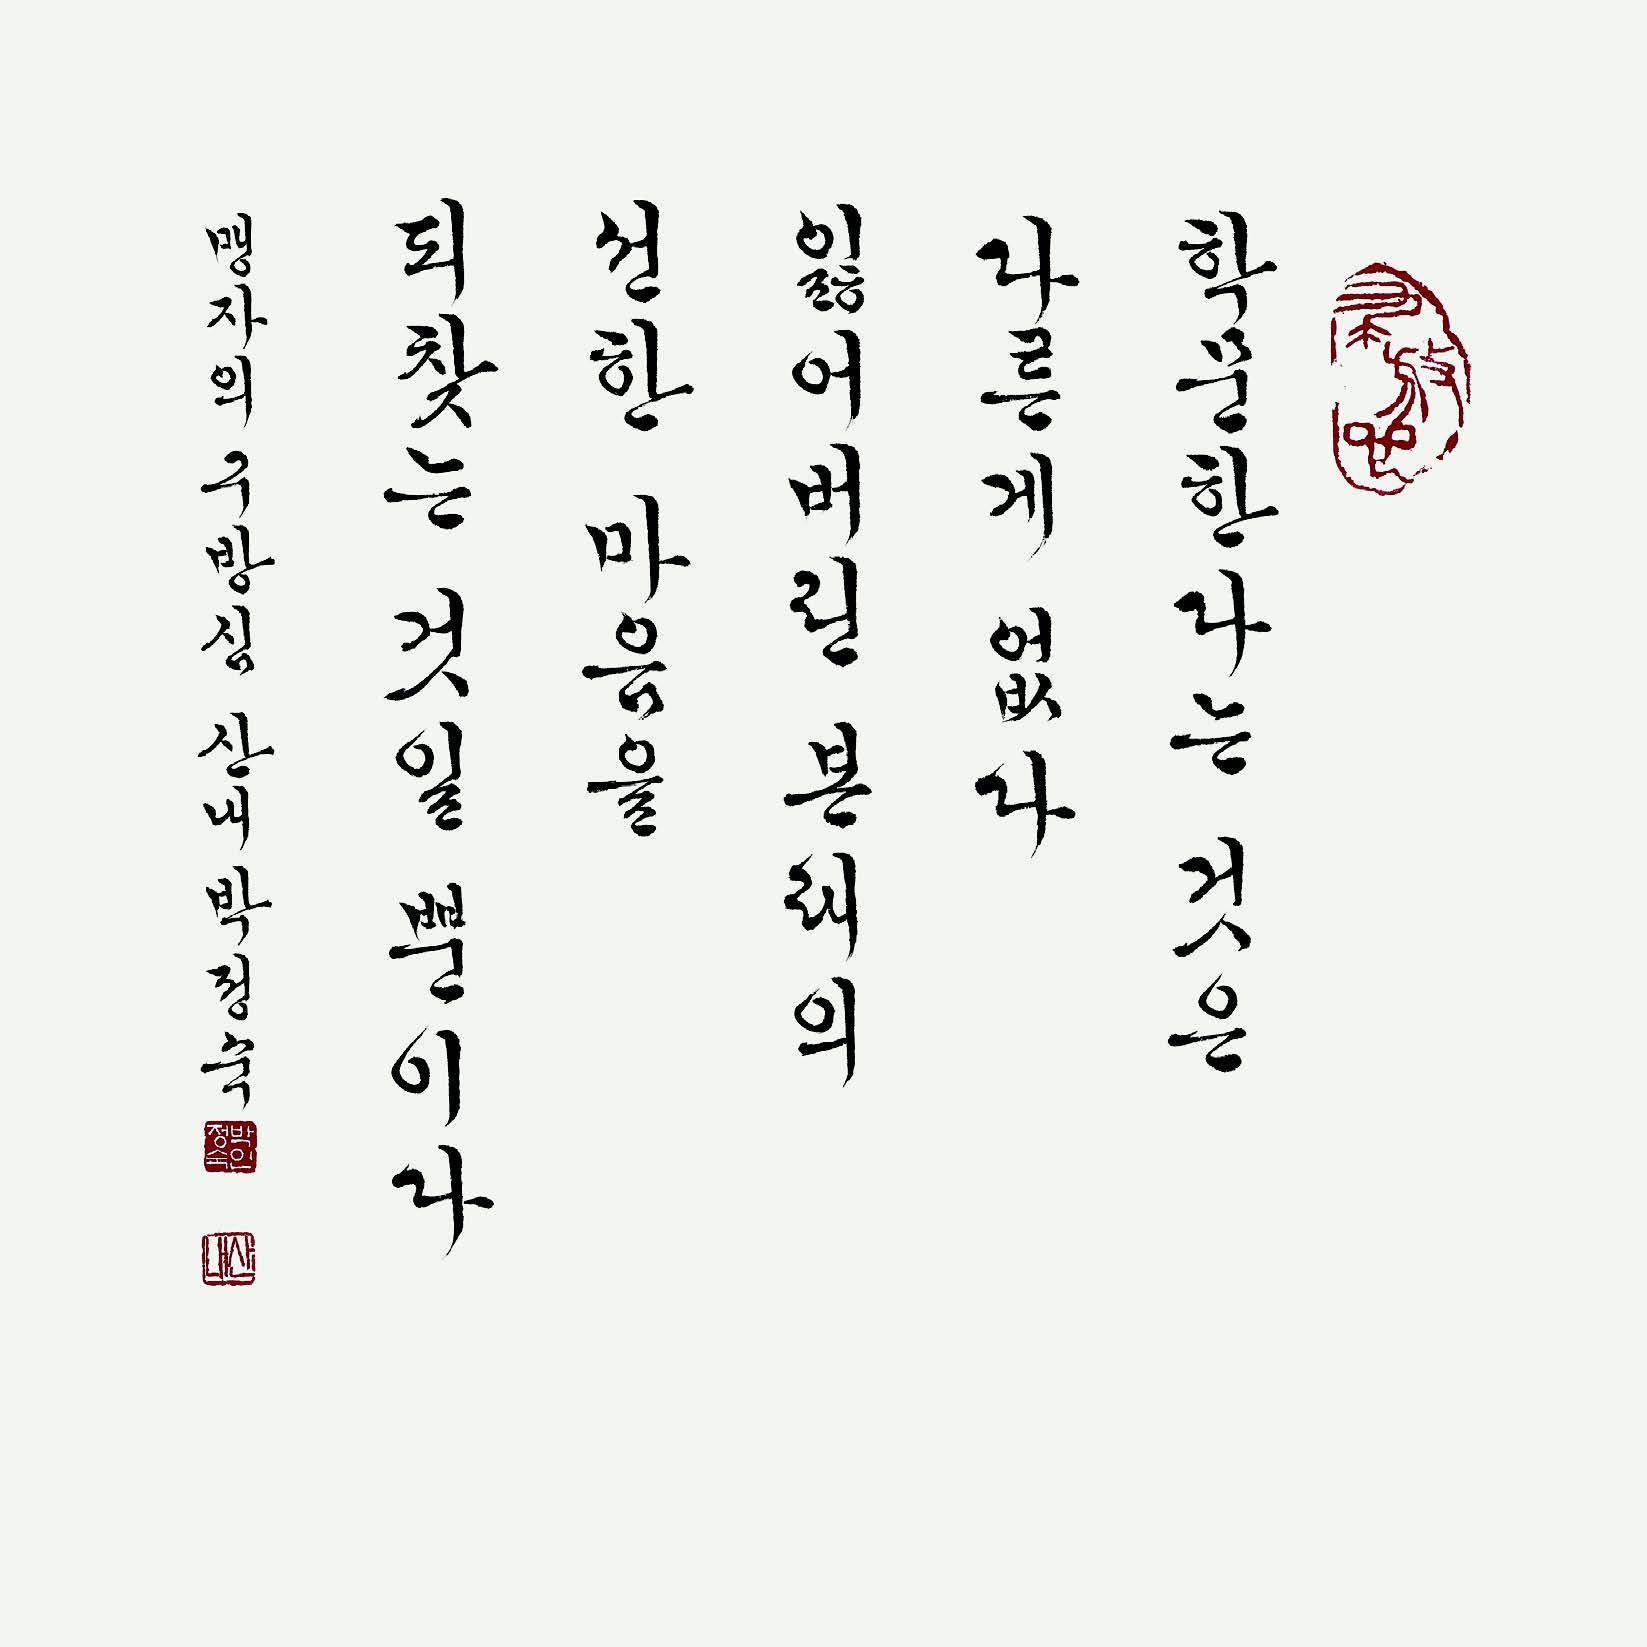 학문한다는 것은
다른게 없다
잃어버린 본래의
선한 마음을
되찾는 것일 뿐이다
맹자의 구방심 산내 박정숙
박인정숙
산내